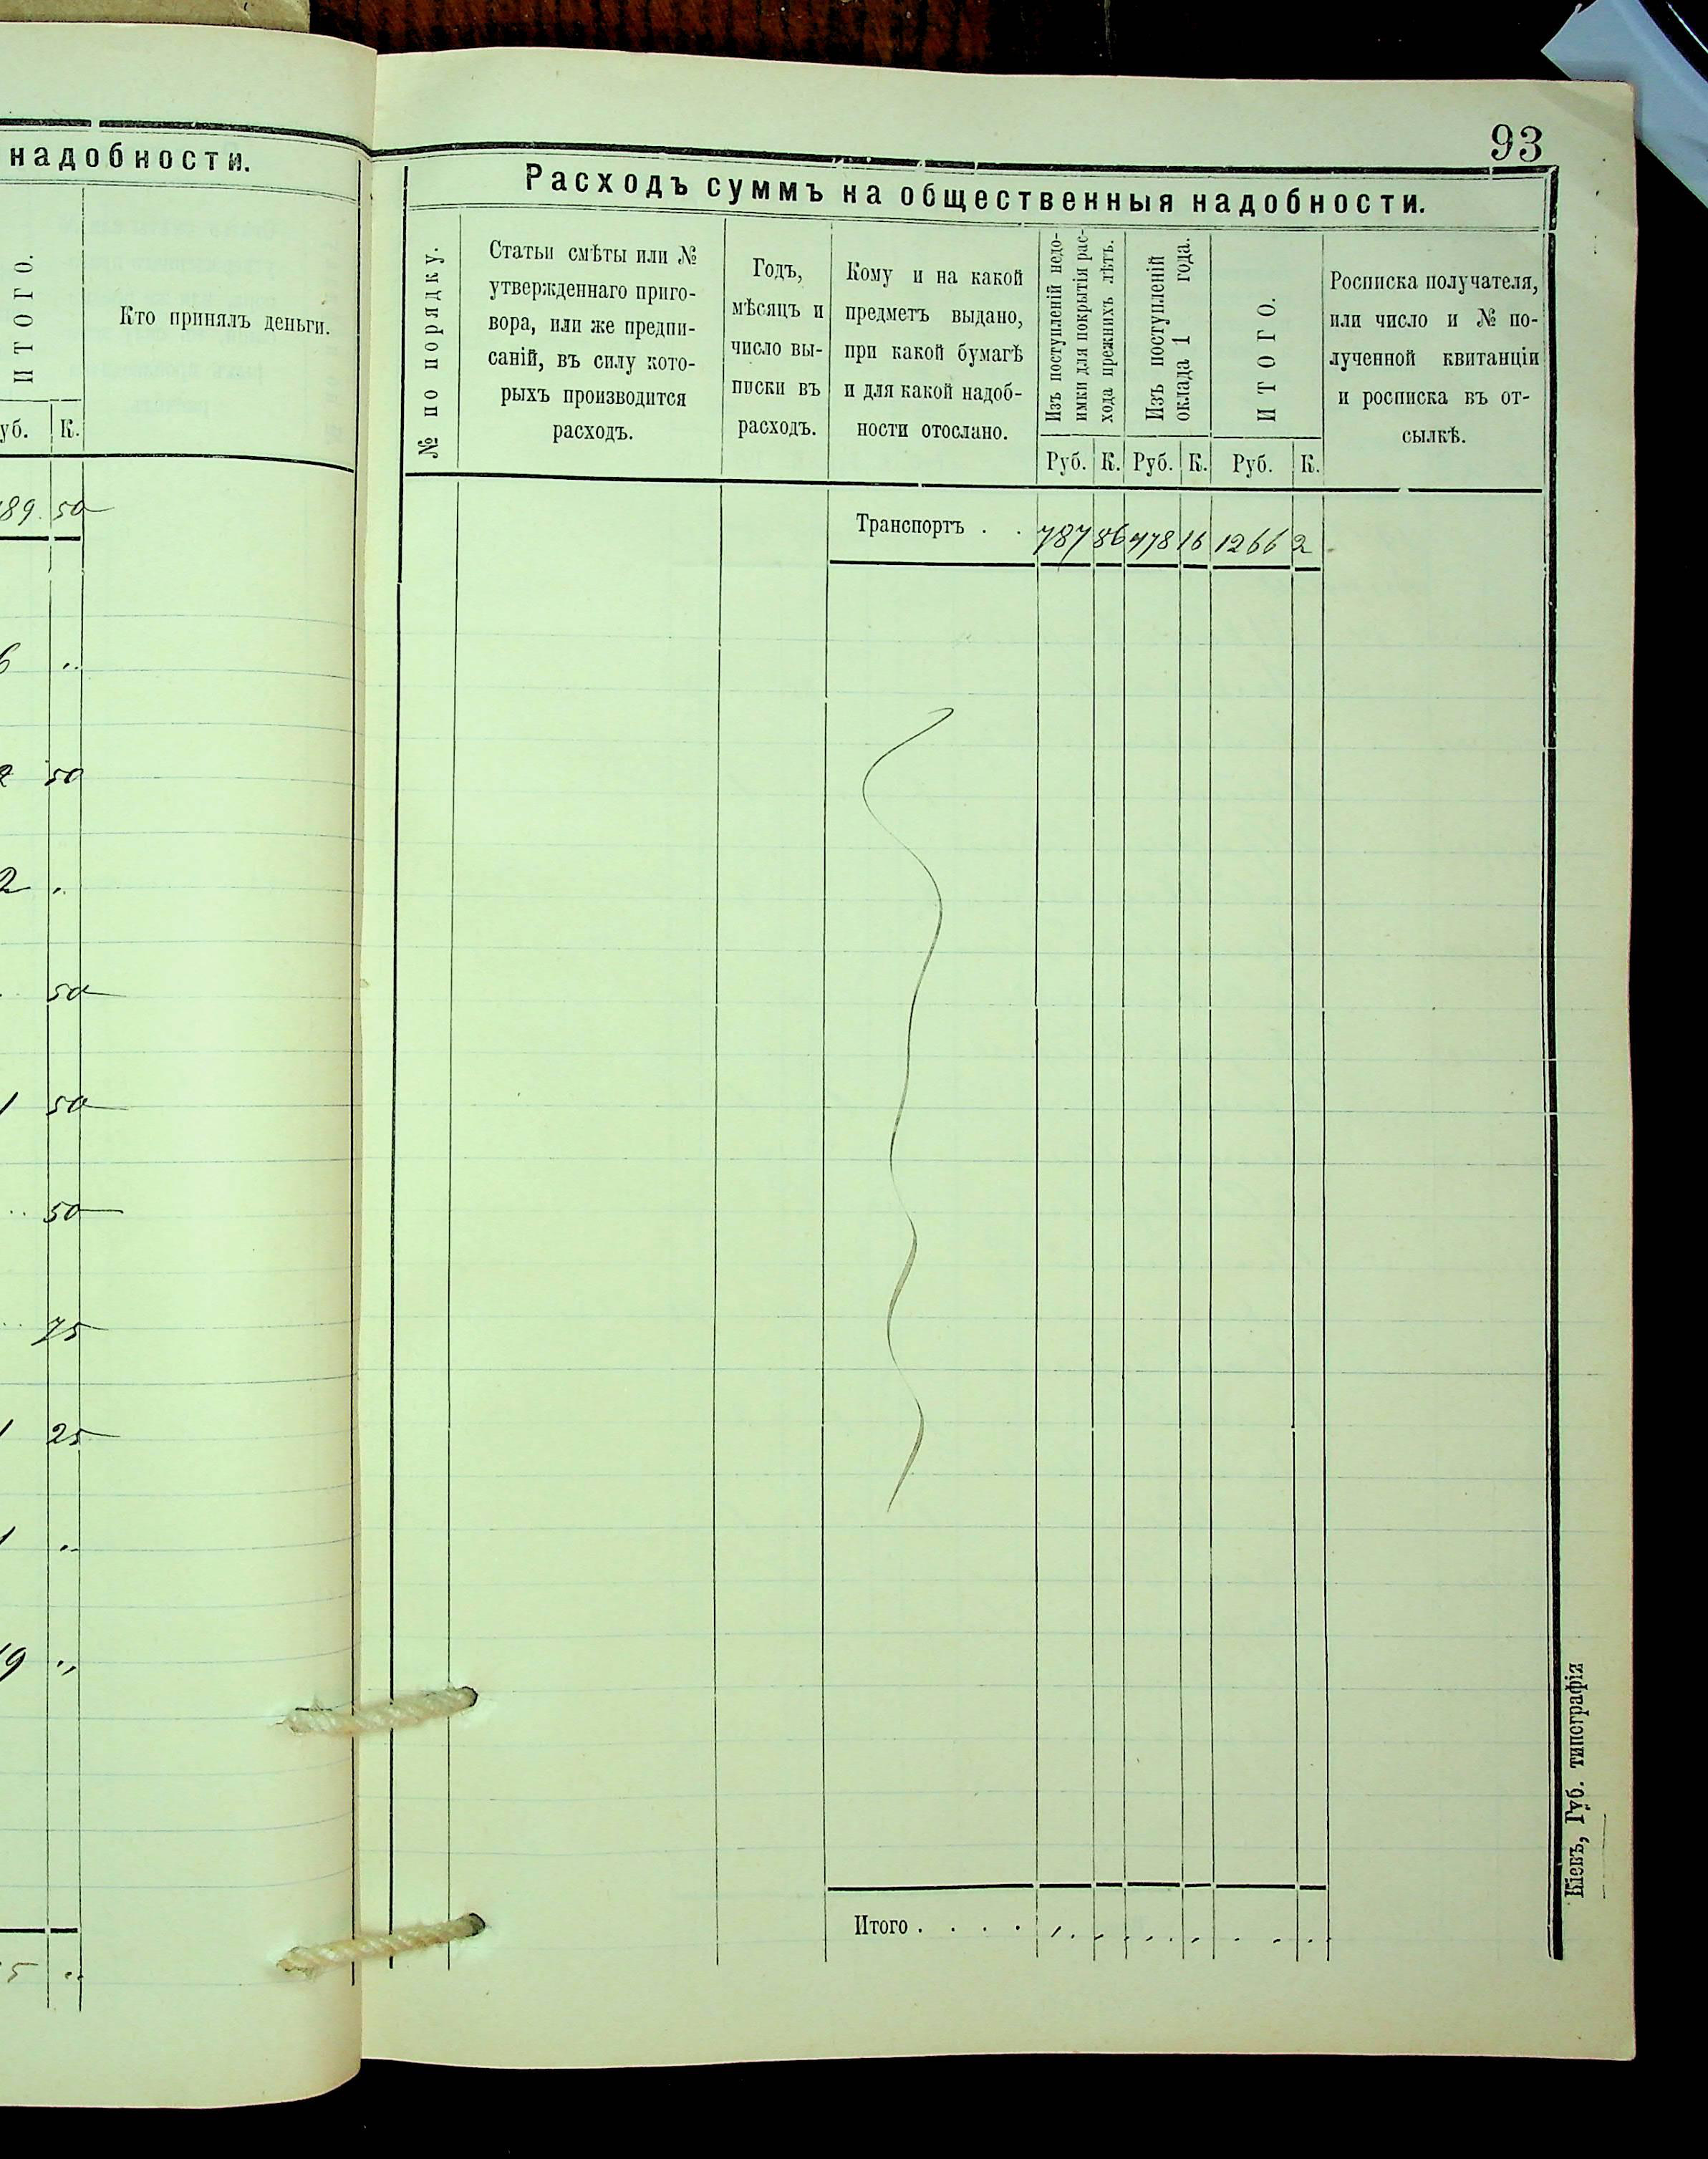 надобности.
ИТОГО.
Кто принялъ деньги.
уб. К.
89 50
6 "
2 50
2 "
50
1 50
50
75
1 25
1 "
19 "
5 "
93
Расходъ суммъ на общественныя надобности.
№ по порядку.
Статьи смѣты или №
утвержденнаго приго-
вора, или же предпи-
саній, въ силу кото-
рыхъ производится
расходъ.
Годъ,
мѣсяцъ и
число вы-
писки въ
расходъ.
Кому и на какой
предметъ выдано,
при какой бумагѣ
и для какой надоб-
ности отослано.
Изъ поступленій недо-
имки для покрытія рас-
хода прежнихъ лѣтъ.
Изъ поступленій
оклада 1 года.
ИТОГО.
Росписка получателя,
или число и № по-
лученной квитанціи
и росписка въ от-
сылкѣ.
Руб. К. Руб. К. Руб. К.
Транспортъ . . 787 86 478 16 1266 2
Итого . . . .
Кіевъ, Губ. типографія